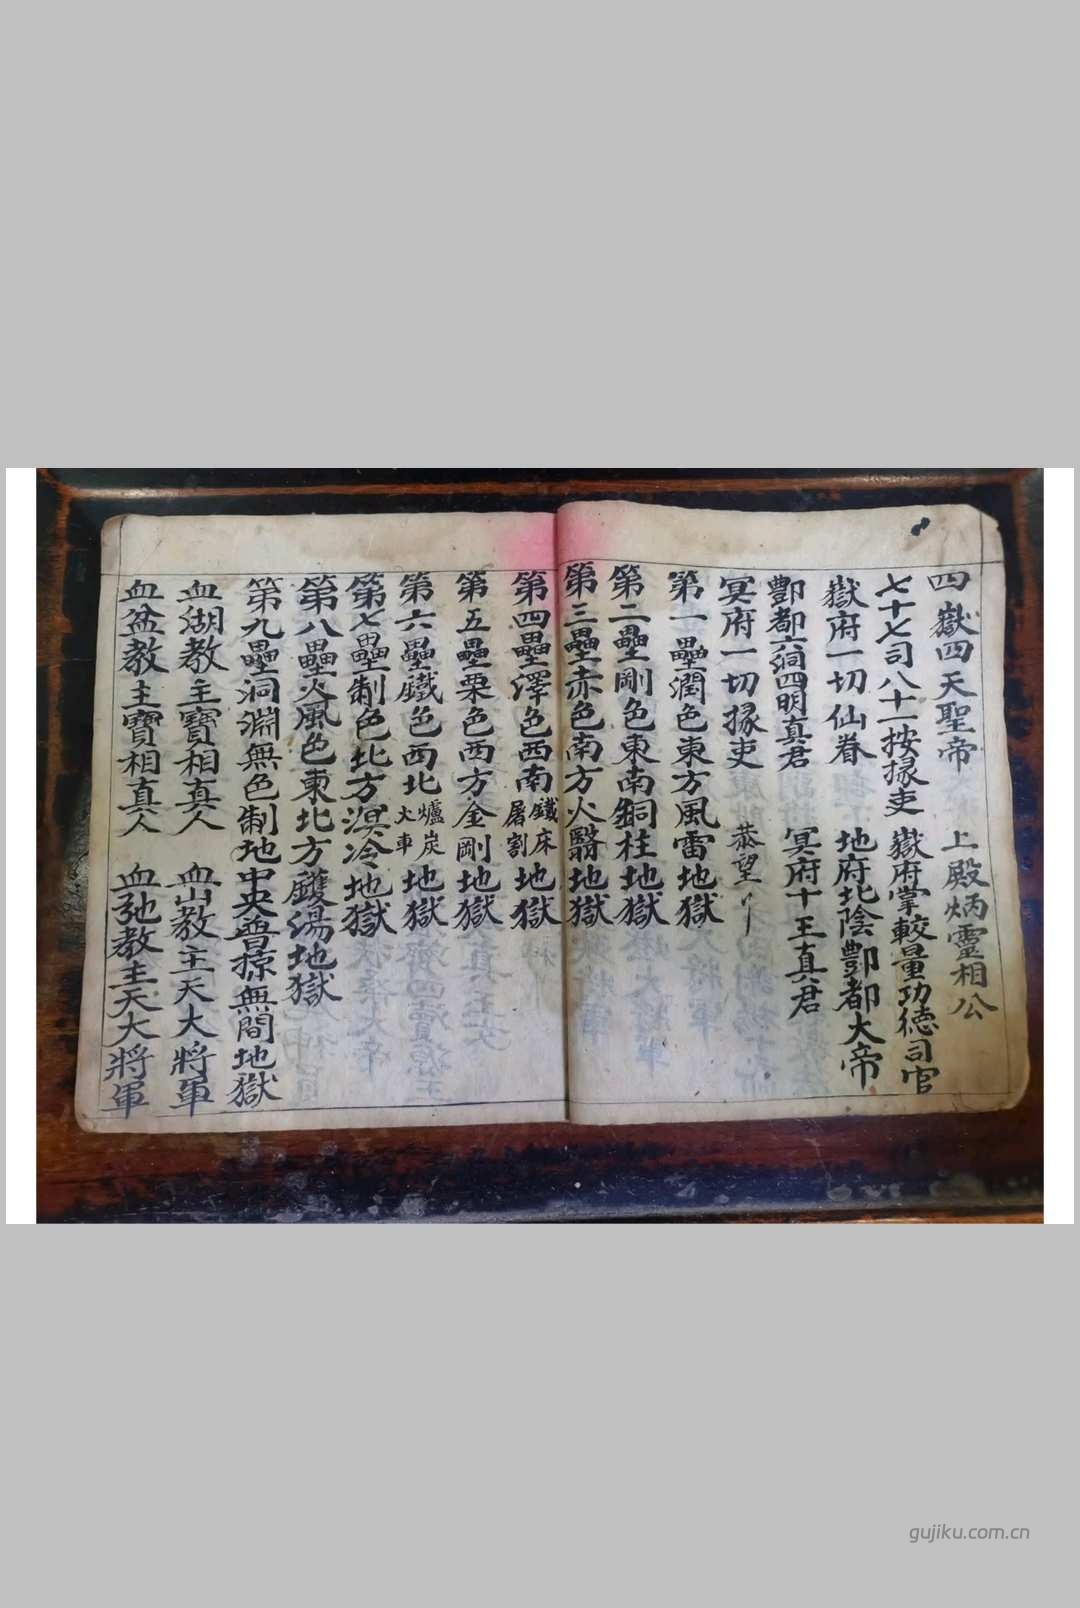 四嶽四天聖帝　上殿炳靈相公
七十七司八十一按掾吏　嶽府掌較量功德司官
嶽府一切仙眷　地府北陰酆都大帝
酆都六洞四明真君　冥府十王真君
冥府一切掾吏　恭望
第一壘潤色東方風雷地獄
第二壘剛色東南銅柱地獄
第三壘赤色南方火翳地獄
第四壘澤色西南鐵床屠割地獄
第五壘栗色西方金剛地獄
第六壘鐵色西北爐炭火車地獄
第七壘制色北方溟冷地獄
第八壘火風色東北方鑊湯地獄
第九壘洞淵無色制地中央普掠無間地獄
血湖教主寶相真人　血山教主天大將軍
血盆教主寶相真人　血池教主天大將軍
gujiku.com.cn